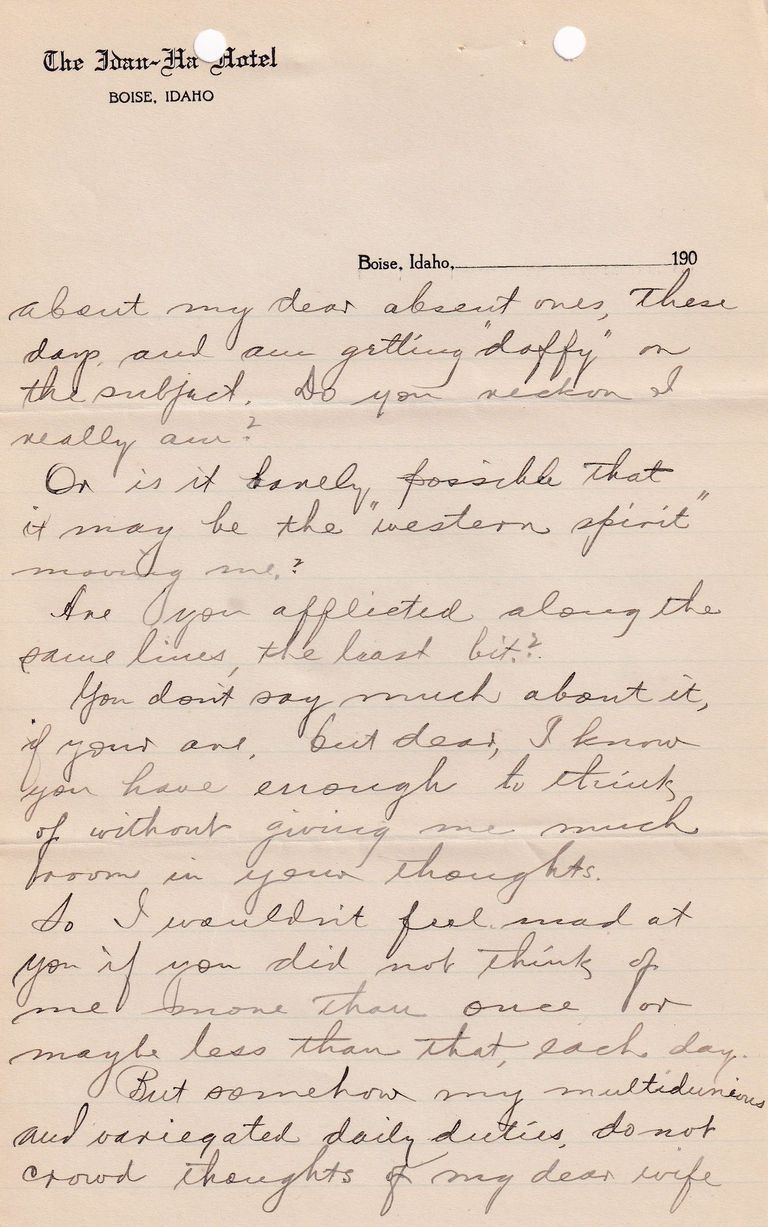 The Idan-Ha Hotel
BOISE, IDAHO
Boise, Idaho, 190
about my dear absent ones, these
days, and am getting "daffy" on
the subject. Do you reckon I
really am?
Or is it barely possible that
it may be the "western spirit"
moving me?
Are you afflicted along the
same lines, the least bit?
You don't say much about it,
if your are, but dear, I know
you have enough to think
of without giving me much
room in your thoughts.
So I wouldn't feel mad at
you if you did not think of
me more than once or
maybe less than that, each day.
But somehow my multidunious
and variegated daily duties, do not
crowd thoughts of my dear wife